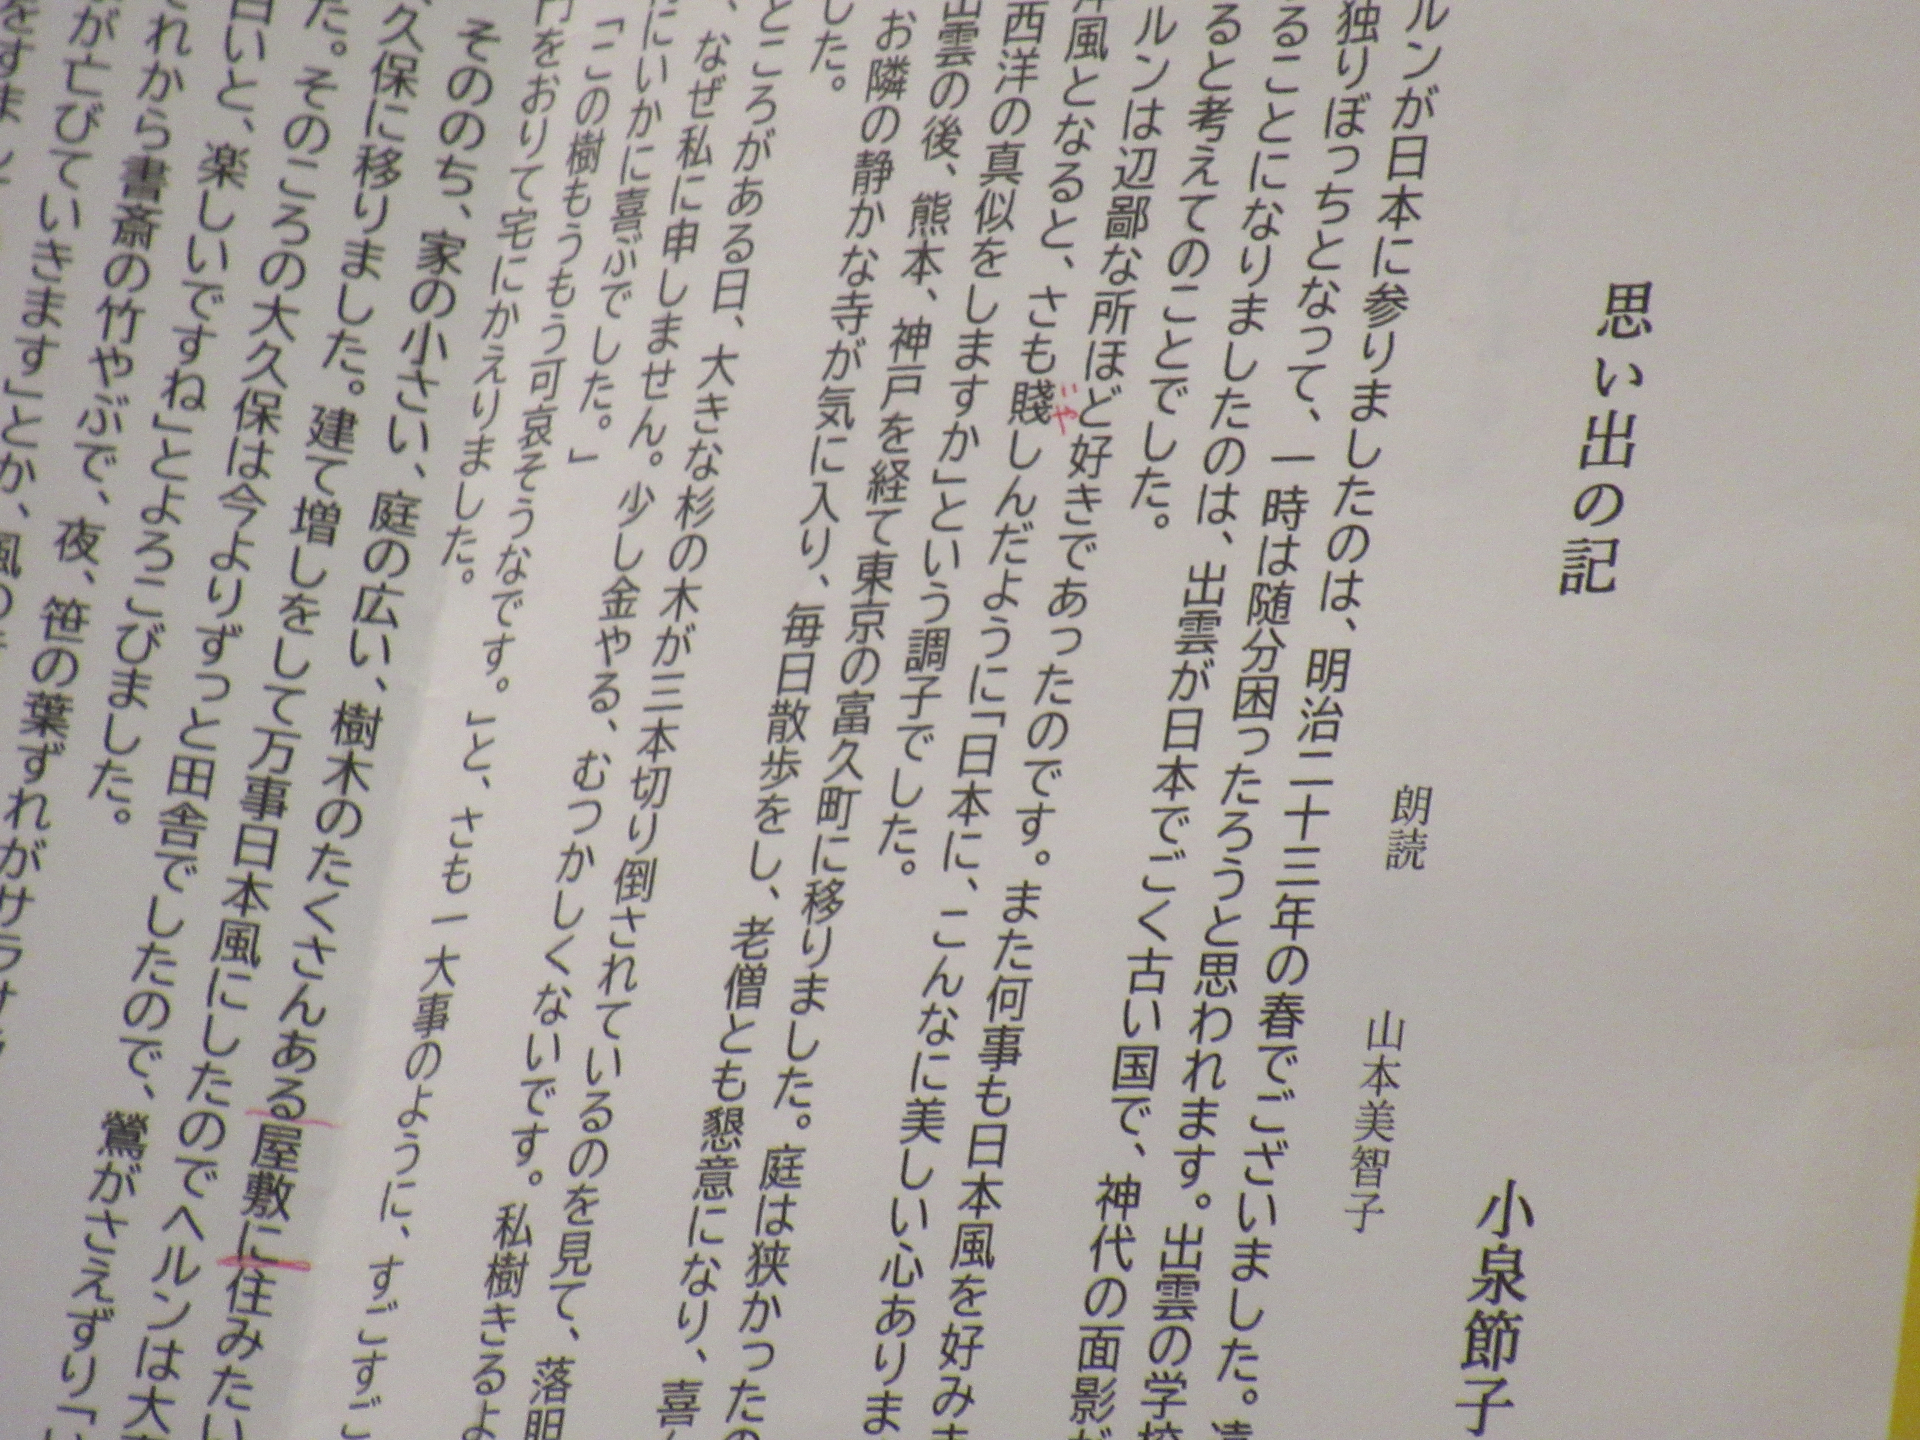 思い出の記
小泉節子
朗読 山本美智子
ルンが日本に参りましたのは、明治二十三年の春でございました。
独りぼっちとなって、一時は随分困ったろうと思われます。出雲の学校
ることになりましたのは、出雲が日本でごく古い国で、神代の面影が
ると考えてのことでした。
ルンは辺鄙な所ほど好きであったのです。また何事も日本風を好みま
洋風となると、さも賤しんだように「日本に、こんなに美しい心ありま
じゃ
西洋の真似をしますか」という調子でした。
出雲の後、熊本、神戸を経て東京の富久町に移りました。庭は狭かったの
お隣の静かな寺が気に入り、毎日散歩をし、老僧とも懇意になり、喜
した。
ところがある日、大きな杉の木が三本切り倒されているのを見て、落胆
、なぜ私に申しません。少し金やる、むつかしくないです。私樹きるよ
にいかに喜ぶでした。」
「この樹もうもう可哀そうなです。」と、さも一大事のように、すごすご
門をおりて宅にかえりました。
そののち、家の小さい、庭の広い、樹木のたくさんある屋敷に住みたい
久保に移りました。建て増しをして万事日本風にしたのでヘルンは大
た。そのころの大久保は今よりずっと田舎でしたので、鶯がさえずり「
白いと、楽しいですね」とよろこびました。
れから書斎の竹やぶで、夜、笹の葉ずれがサラサラ
が亡びていきます」とか、風の